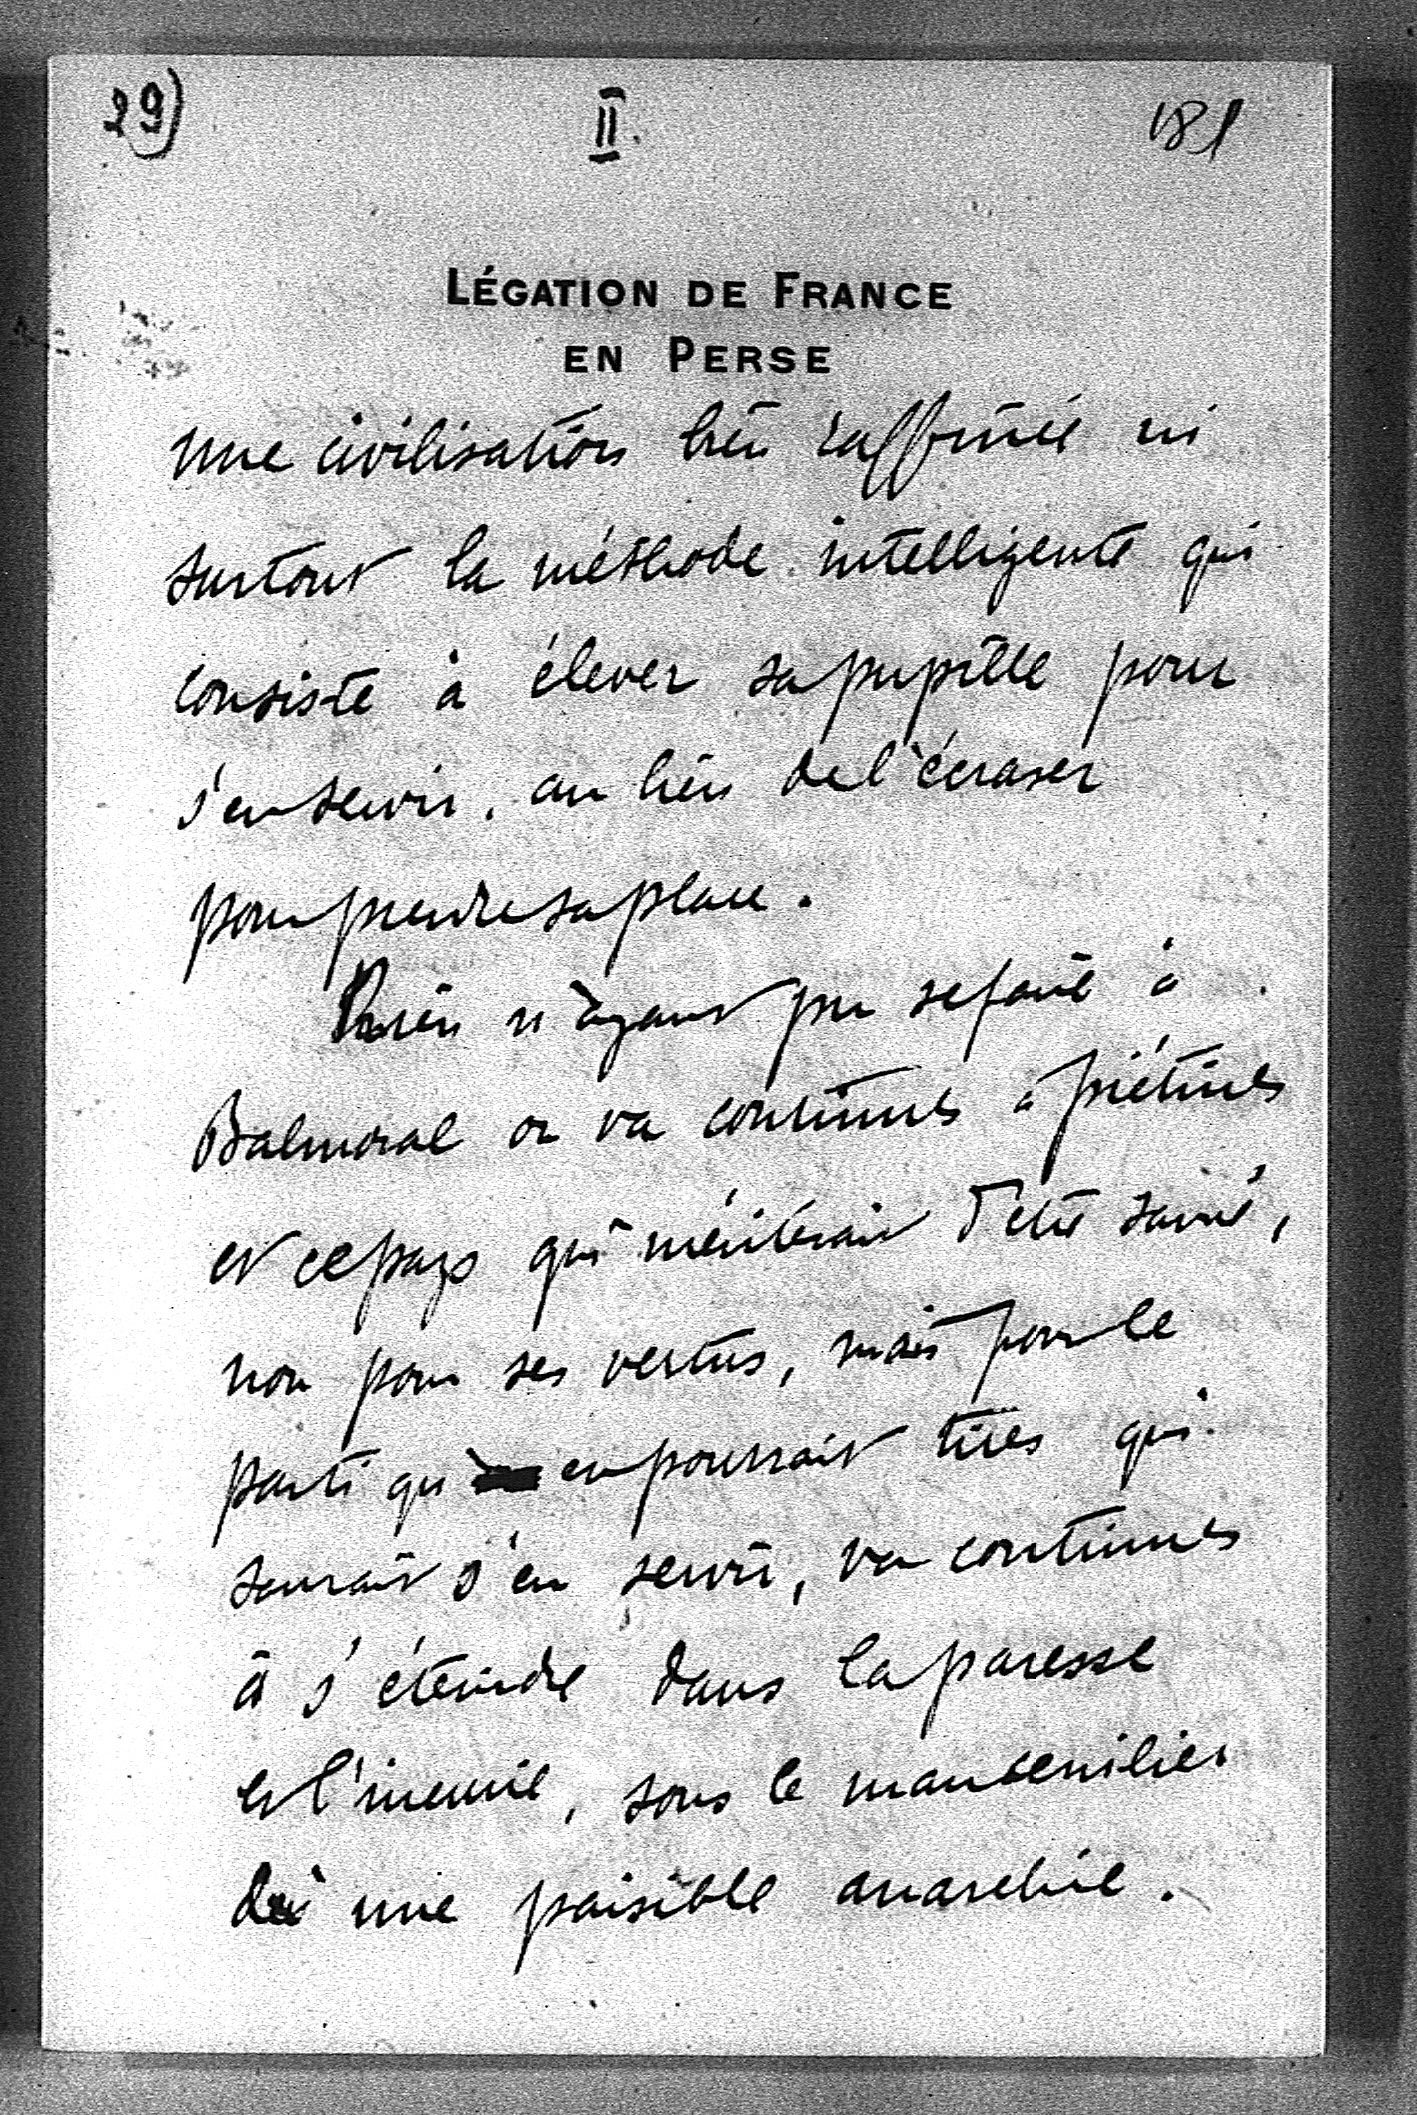 29)
II.
181
LÉGATION DE FRANCE
EN PERSE
une civilisation bien raffinée ni
surtout la méthode intelligente qui
consiste à élever sa pupille pour
s'en servir, au lieu de l'écraser
pour prendre sa place.
Rien n'ayant pu se faire à
Balmoral on va continuer à piétiner
et ce pays qui mériterait d'être sauvé,
non pour ses vertus, mais pour le
parti qu'en pourrait tirer qui
saurait s'en servir, va continuer
à s'éteindre dans la paresse
et l'incurie, sous le mancenilier
d'une paisible anarchie.